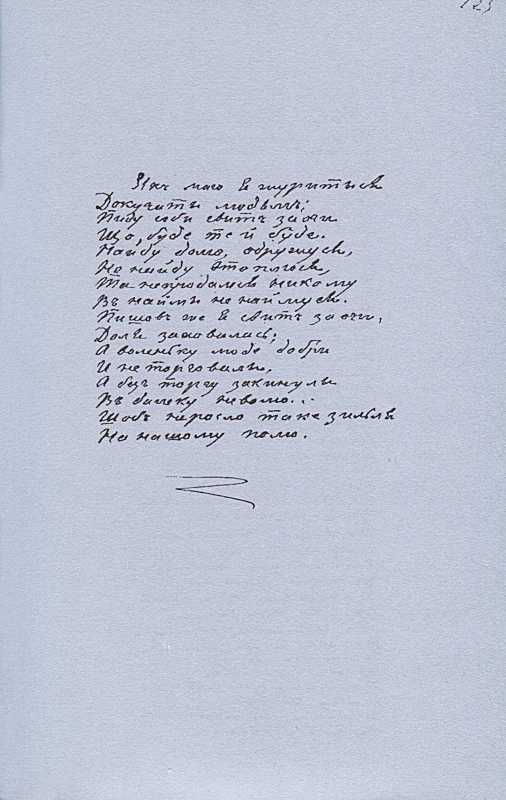 123
Якъ маю я журитыся
Докучаты людямъ;
Пиду соби свитъ за очи
Що, буде те й буде.
Найду долю, одружуся,
Не найду втоплюся,
Та непродамся никому
Въ найми не наймуся.
Пишовъ же я свитъ за очи,
Доля заховалась;
А воленьку люде добри
И не торговалы,
А безъ торгу закинулы
Въ далеку неволю...
Щобъ неросло таке зилля
На нашому полю.